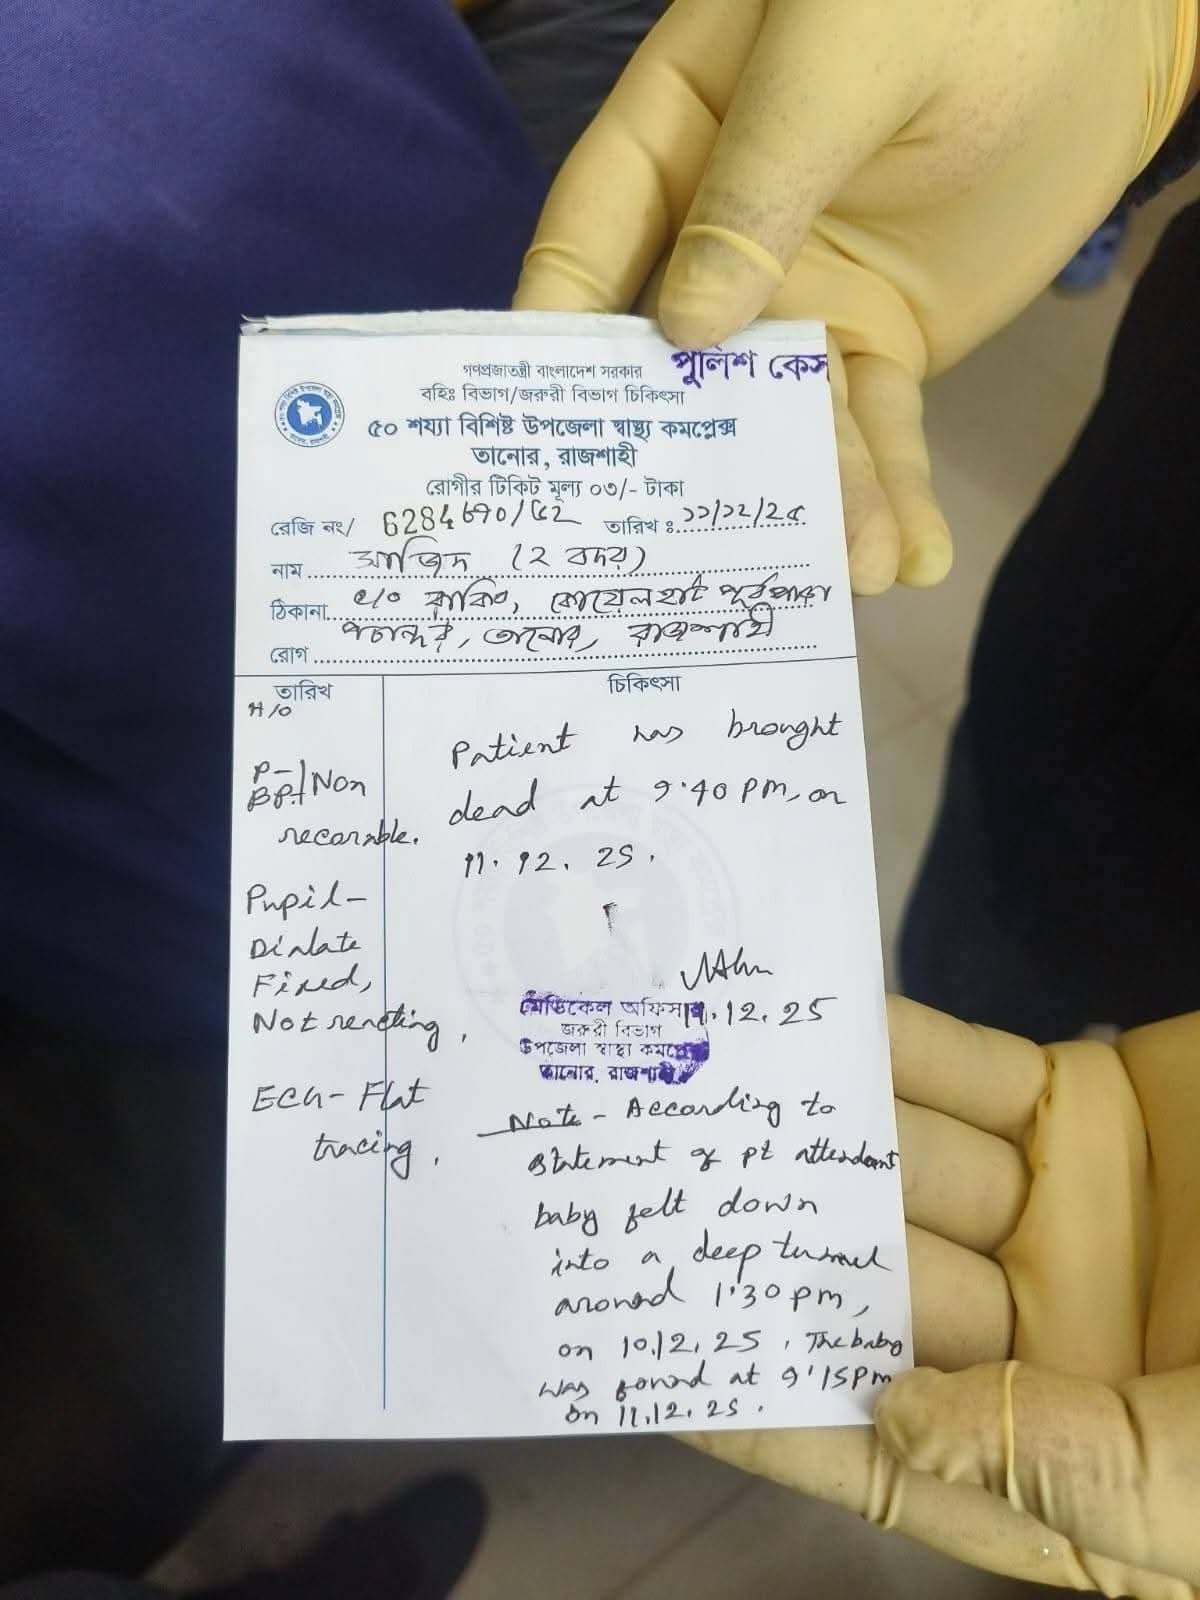 পুলিশ কেস
গণপ্রজাতন্ত্রী বাংলাদেশ সরকার
বহিঃ বিভাগ/জরুরী বিভাগ চিকিৎসা
৫০ শয্যা বিশিষ্ট উপজেলা স্বাস্থ্য কমপ্লেক্স
তানোর, রাজশাহী
রোগীর টিকিট মূল্য ০৩/- টাকা
রেজি নং/ তারিখ ঃ ১১/১২/২৫
নাম সাজিদ (২ বছর)
ঠিকানা c/o রাকিব, কোয়েলহাট পূর্বপাড়া
পচান্দর, তানোর, রাজশাহী
রোগ
তারিখ চিকিৎসা
H/O
Patient was brought
dead at 9:40 pm, on
11. 12. 25.
P-
BP- Non
recorable.
Pupil-
Dialate
Fixed,
Not reacting,
ECG- Flat
tracing,
11.12.25
মেডিকেল অফিসার
জরুরী বিভাগ
উপজেলা স্বাস্থ্য কমপ্লেক্স
তানোর, রাজশাহী
Note - According to
statement of pt attendant
baby felt down
into a deep tunnel
around 1:30 pm,
on 10.12.25. The baby
was found at 9:15 pm
on 11.12.25.